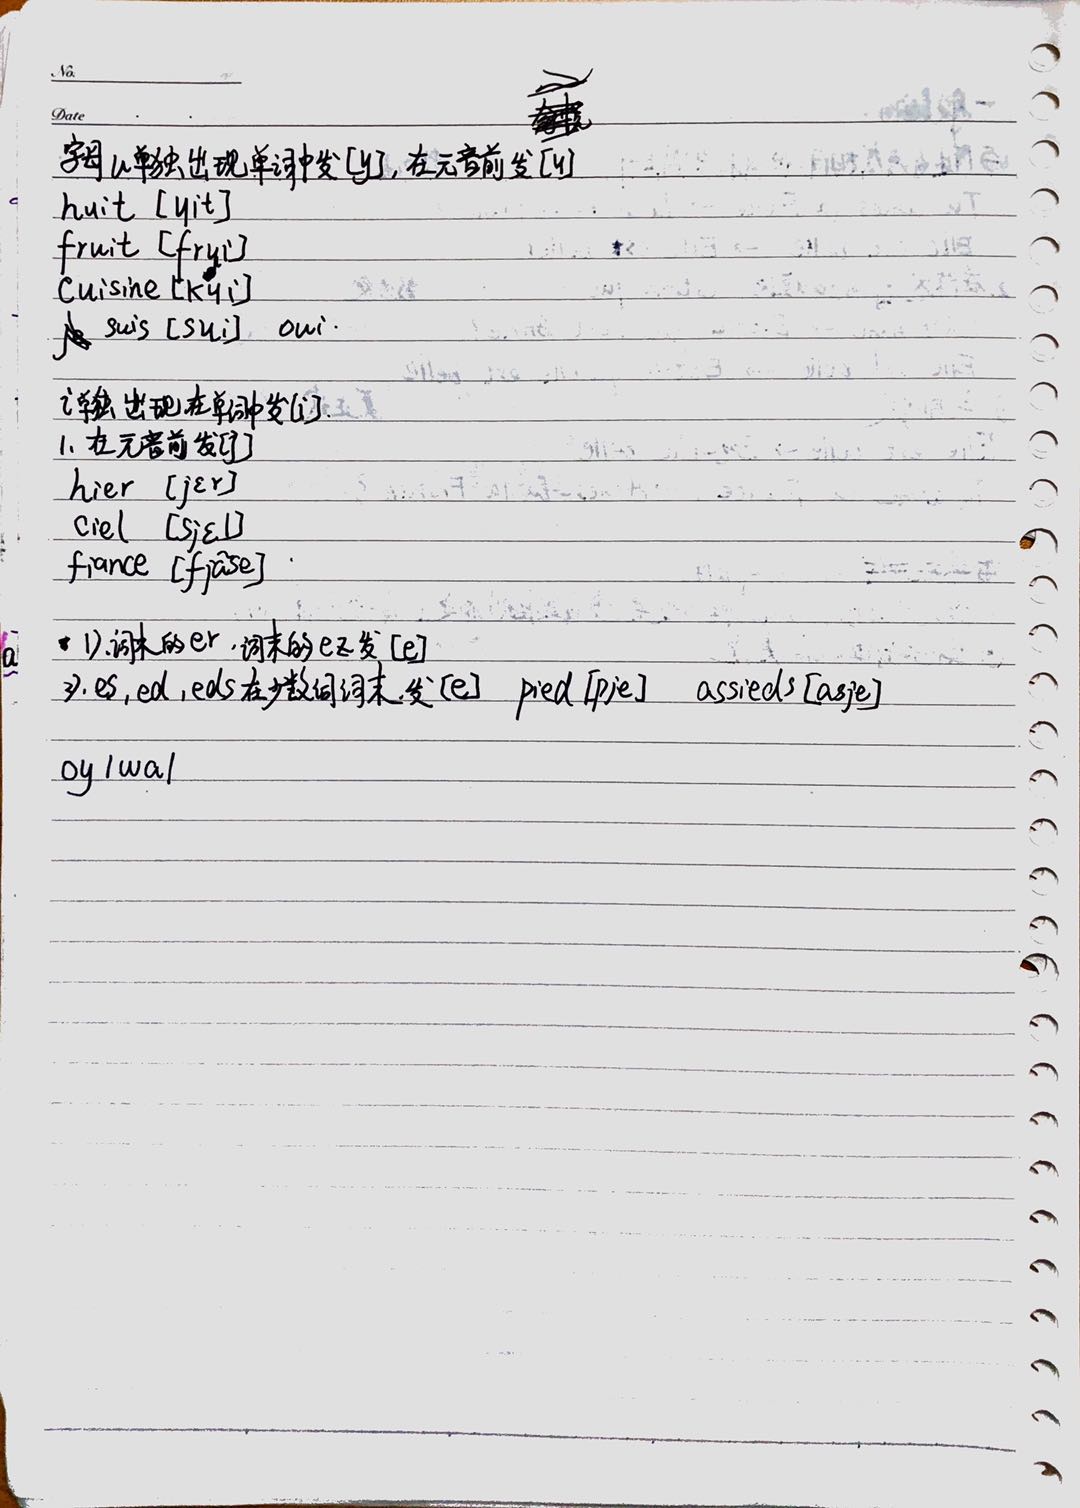 No.
Date
字母u单独出现单词中发[y],在元音前发[ɥ]
huit [ɥit]
fruit [frɥi]
cuisine [kɥi]
suis [sɥi] oui.
i单独出现在单词中发[i].
1. 在元音前发[j]
hier [jɛr]
ciel [sjɛl]
fiance [fjãse]
1).词末的er.词末的ez发[e]
3).es,ed,eds在少数词词末.发[e] pied [pje] assieds [asje]
oy/wa/
a